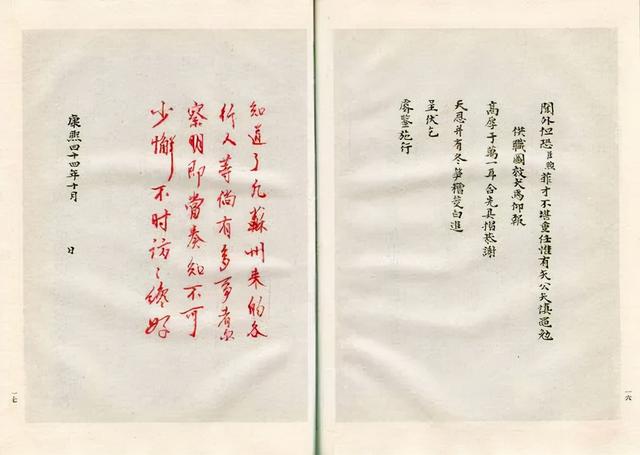 閫外但恐臣煦菲才不堪重任惟有矢公矢慎黽勉
供職圖效犬馬仰報
高厚于萬一耳合先具摺恭謝
天恩并有冬笋糟茭白進
呈伏乞
睿鑒施行
一六
知道了凡蘇州来的各
行人等倘有多事者尔
察明即當奏知不可
少懈不时訪〻纔好
康熙四十四年十月 日
一七